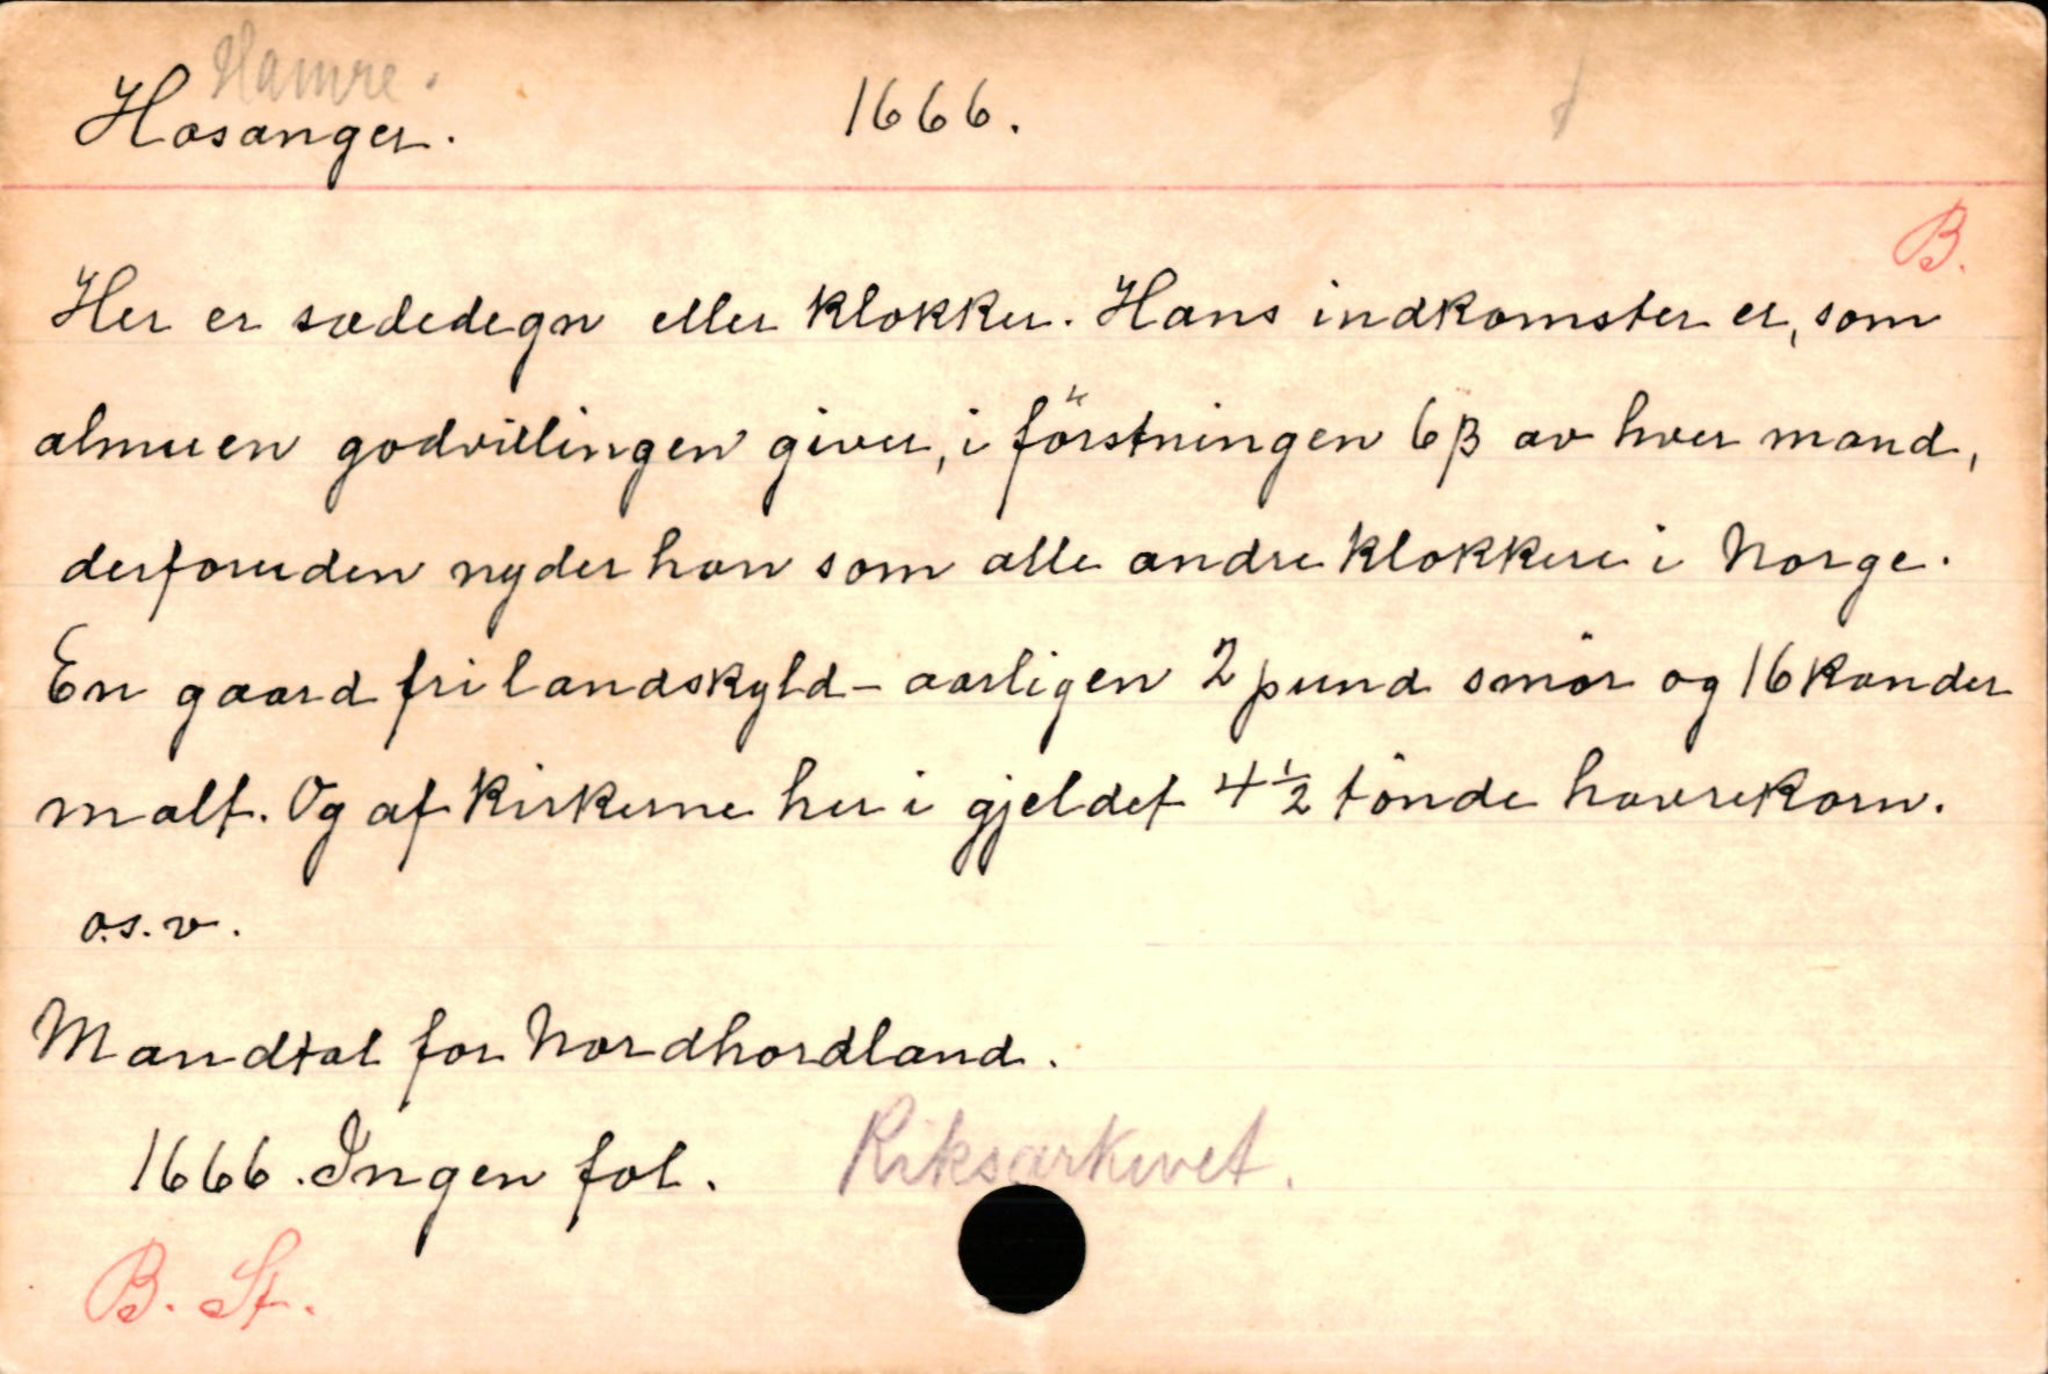 Hamre.
Hosanger. 1666.
B.
Her er sædedegn eller klokker. Hans indkomster er, som
almuen godvillingen giver, i förstningen 6 β av hver mand,
derforuden nyder han som alle andre klokkere i Norge.
En gaard fri landskyld - aarligen 2 pund smör og 16 kander
malt. Og af kirkerne her i gjeldet 4 1/2 tönde havrekorn.
o.s.v.
Mandtal for Nordhordland.
1666. Ingen fol. Riksarkivet.
B. St.